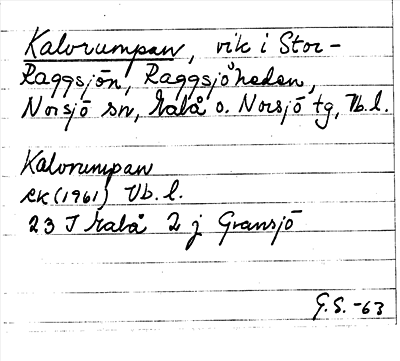 Kalvrumpan, vik i Stor-
Raggsjön, Raggsjöheden,
Norsjö sn, Malå o. Norsjö tg, Vb.l.
Kalvrumpan
ek (1961) Vb. l.
23 J Malå 2 j Gransjö
G.S. -63